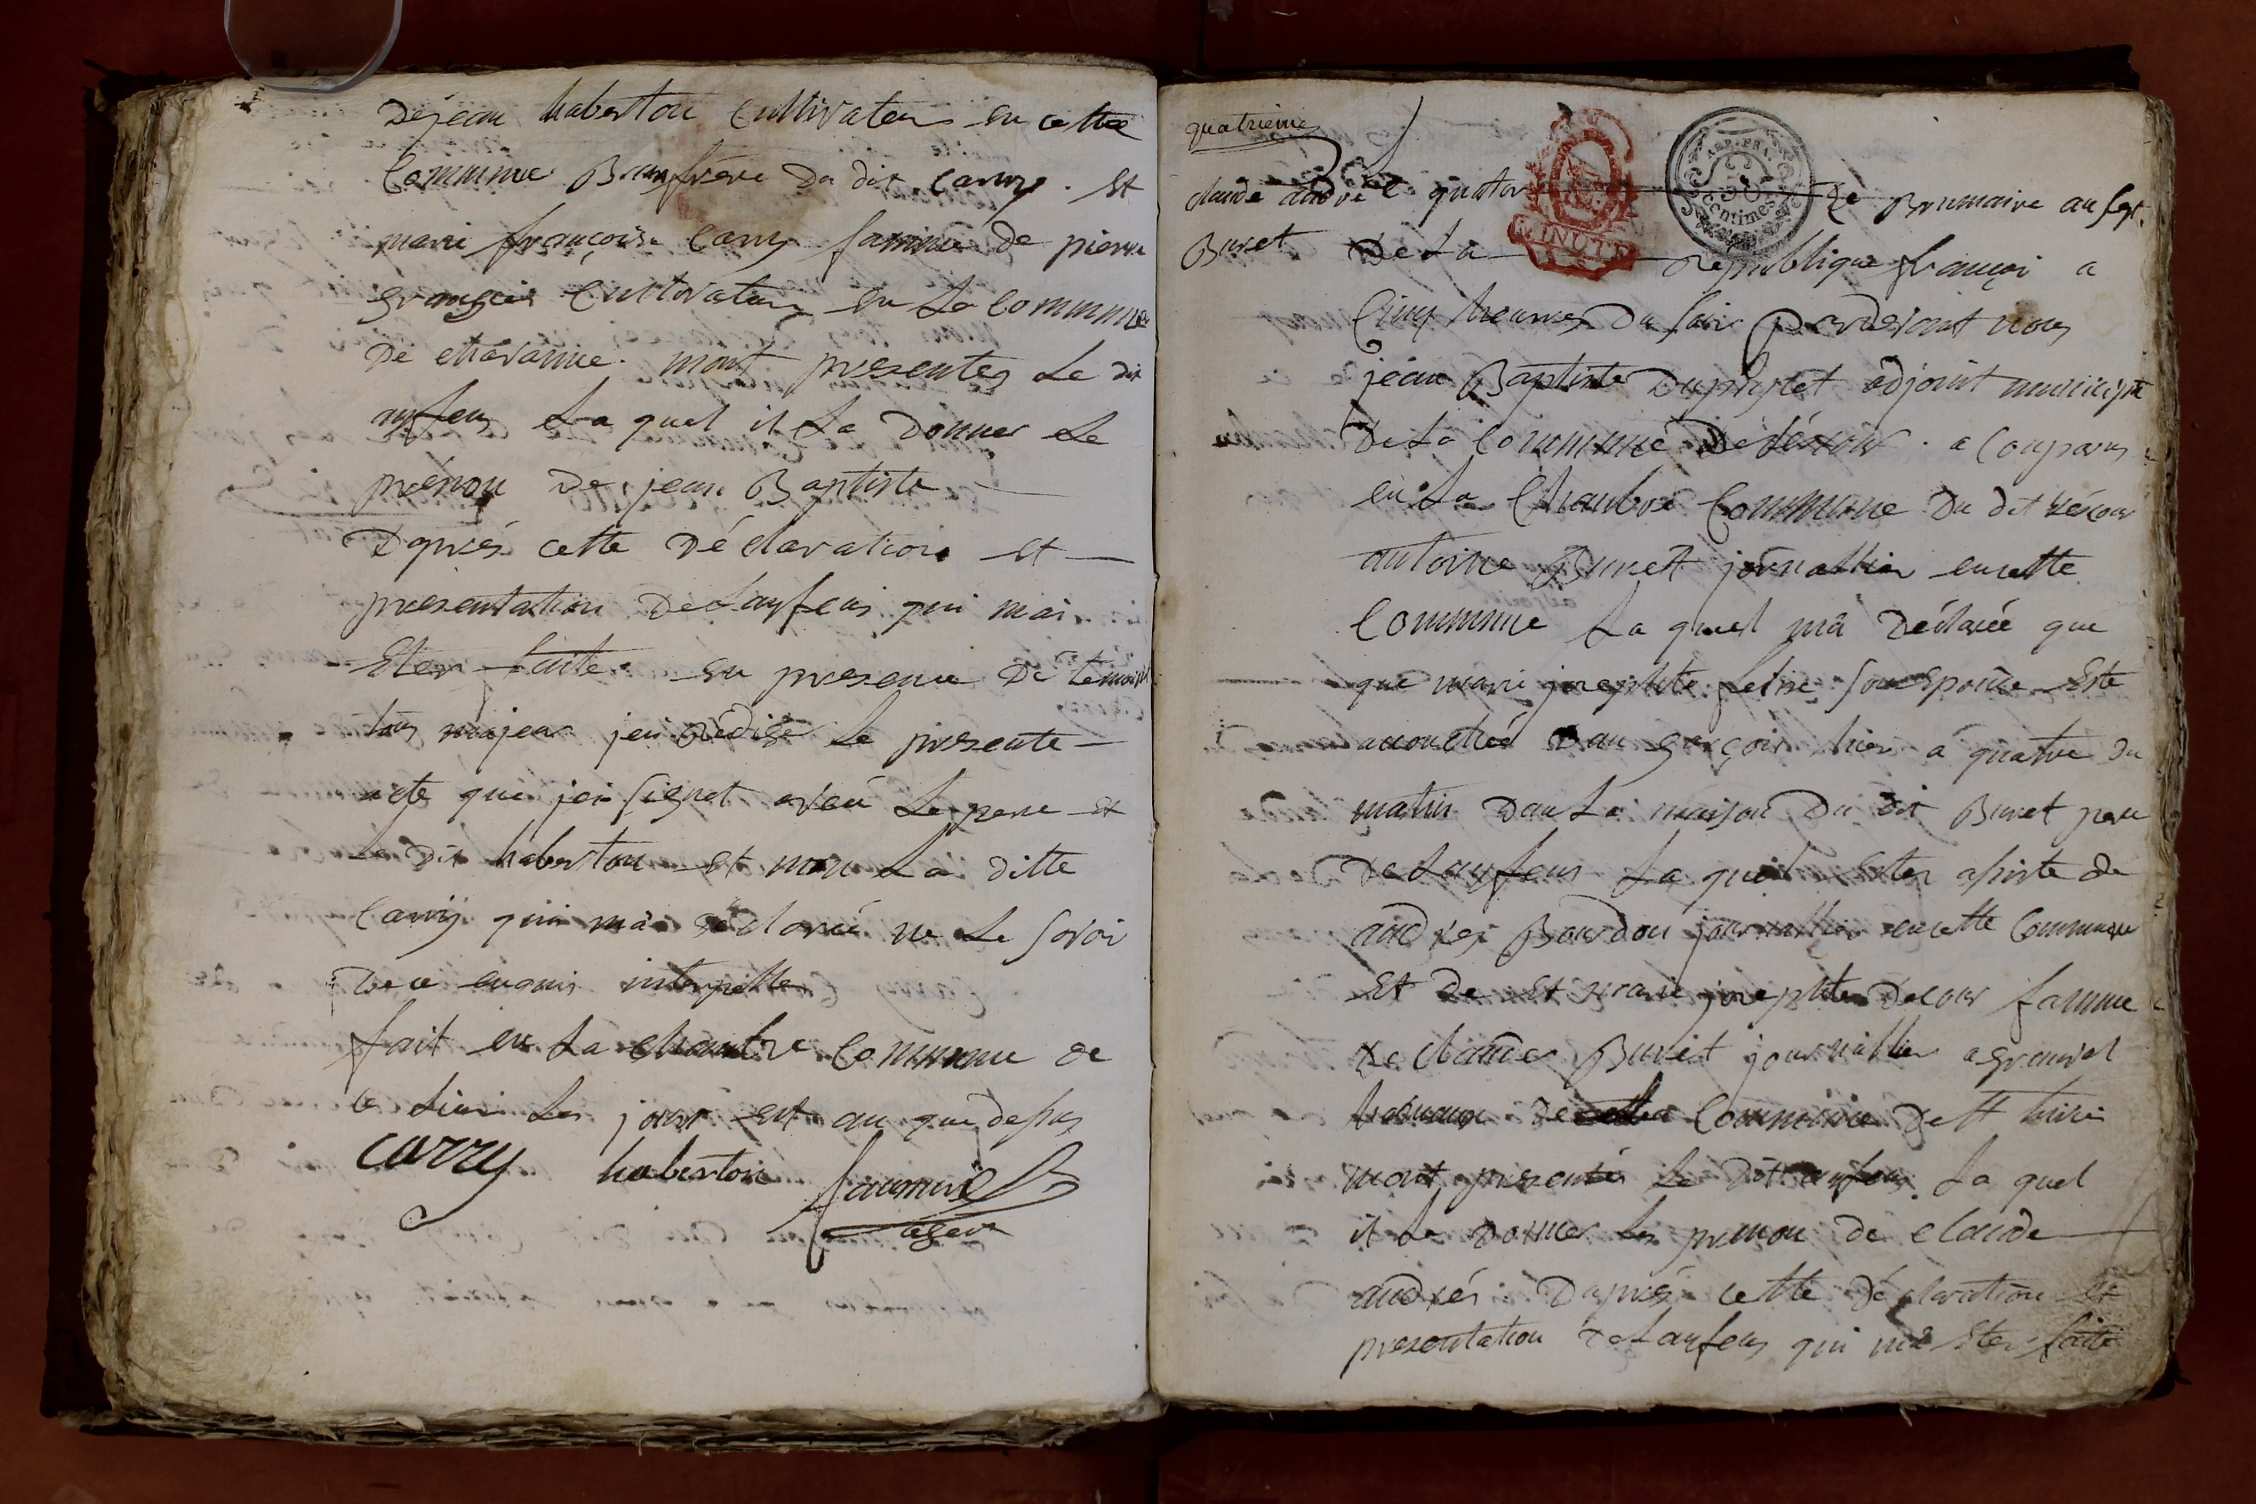 Dejean haberton Cultivateur en cette
Commune Beaufrere Du dit Carry. Et
marie françoise Carry famme de pierre
grangier Cultivateur en La Commune
De chavanne. mont presentez Le dit
anfan La quel il La Donner Le
prénon De jean Baptiste
Daprés cette Déclaration et
presentation De Lanfan qui mai
Eter faite en presence De temoins
tous majeur jeai Rédiger Le presente
acte que jei signet avec Le pere et
Le Dit haberton et non La ditte
Carry qui ma déclarée ne Le savoir
De ce enquis interpelle
fait en La chambre Commune de
ce Lieu Les jour et an que desus
carry haberton
agent
quatrieme
claude André
Buret
Le quator Ze Brumaire an sept
De La Republique françoi a
Cinq heures Du soir pardevant nous
jean Baptiste adjoint municipal
De La Commune De a Comparus
en La Chambre Commune Du dit
antoine Buret jornallier en cette
Commune La quel ma Déclarée que
que marie josephte son Epouse Este
accouchée Dau garçon hier a quatre du
matin Dan La maison Du dit Buret pere
De Lanfan La quel Eter asiste de
andrer Bourdon journallier en cette Commune
Et de Et marie josephte Decour famme
De claude Buret journallier a grand
De Commune De St
mont presenter Le Dit anfan. La quel
il La Donner Les prenon de claude
andrér Daprés cette déclaration et
presentation De Lanfan qui ma Eter faite
MINUTE
REP. FRA.
50
Centimes